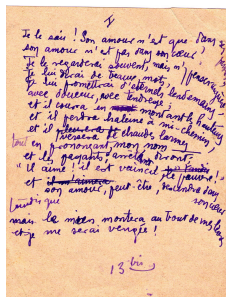 V
Je le sais! Son amour n'est que dans
son amour n'est pas dans son cœur!
Je le regarderai souvent, mais n'
Je lui dirai de beaux mots,
Je lui promettrai d'éternels lendemains,
avec douceur, avec tendresse;
et il courra en montant les hauteurs
et il perdra haleine à mi-chemin,
et il versera de chaudes larmes
tout en prononçant mon nom
et les passants diront,
"il aime! il est vaincu le pauvre!"
et son amour, peut-être, descendra dans
son cœur
tandis que
mais le mien montera au bout de mes
et je me serai vengée!
13 bis